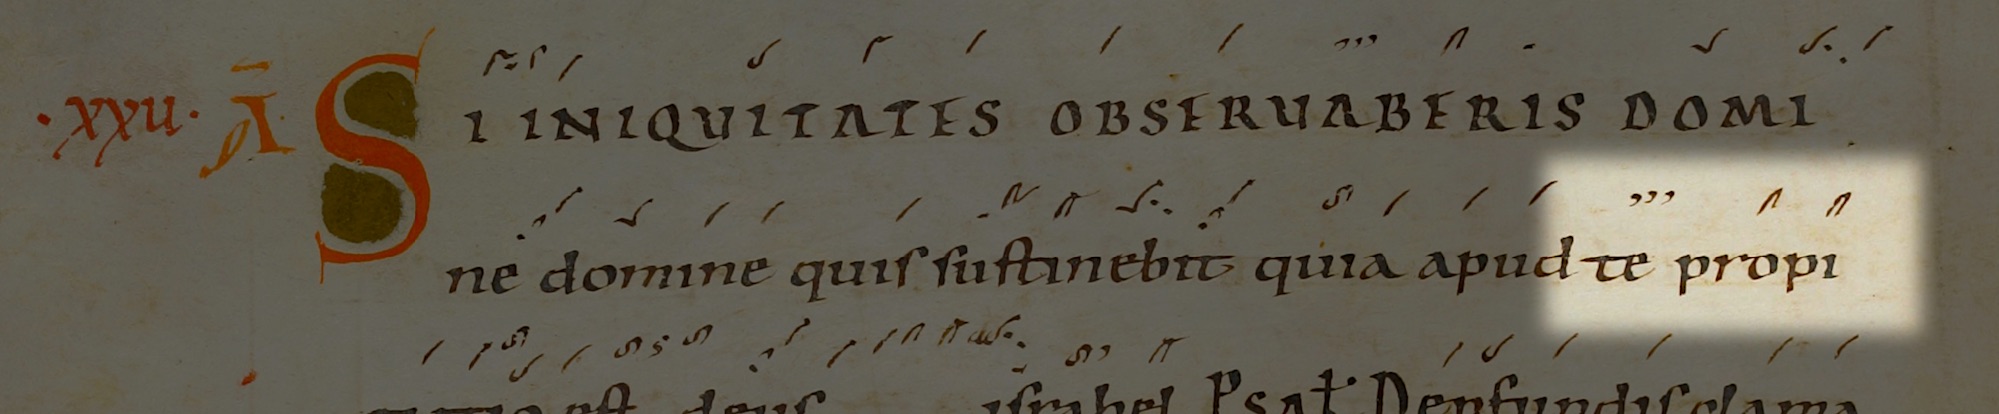 ·xxu· A̅ SI INIQUITATES OBSERUABERIS DOMI
ne domine quis sustinebit quia apud te propi
tiatio est deus israhel Psal̄. Deprofundis clama